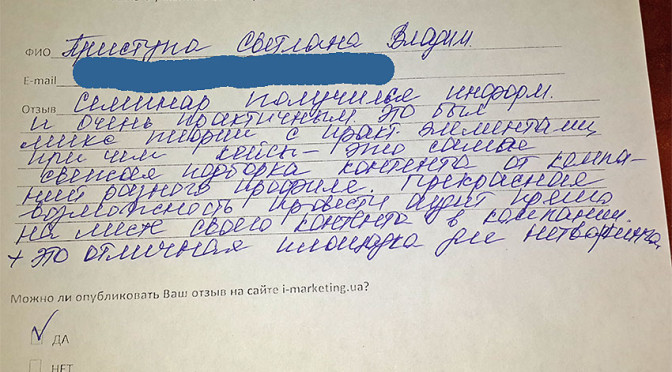 ФИО Приступа Светлана Владим.
E-mail
Отзыв Семинар получился информ.
и очень практичным. Это был
микс теории с практ. элементами
при чем кейсы – это самая
свежая подборка контента от компа-
ний разного профиля. Прекрасная
возможность провести аудит прямо
на месте своего контента в компании.
+ это отличная площадка для нетворкинга
Можно ли опубликовать Ваш отзыв на сайте i-marketing.ua?
ДА
НЕТ